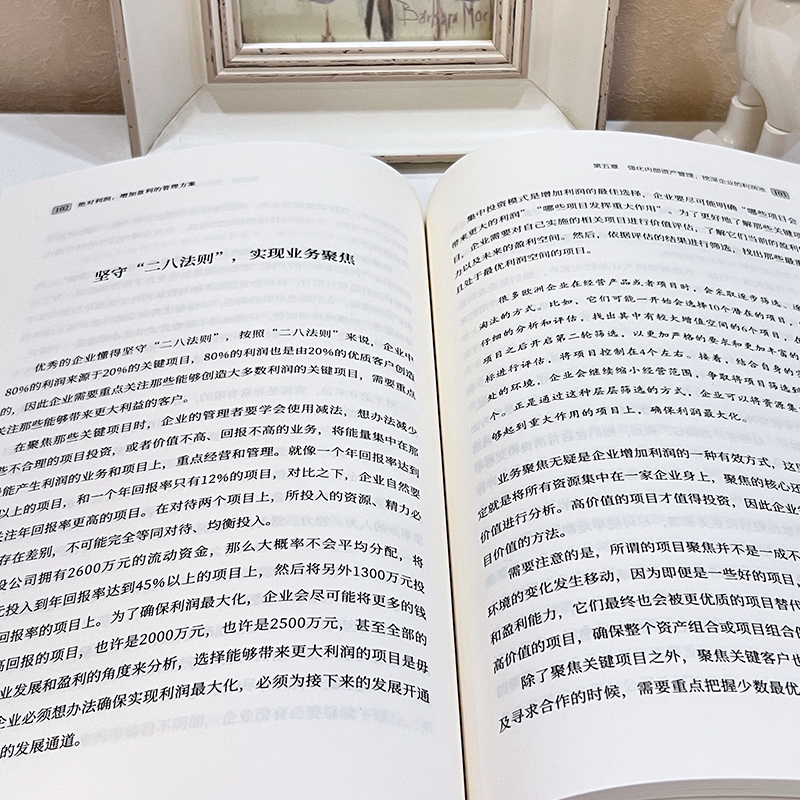 Barbara Mo
102 绝对利润：增加盈利的管理方案
坚守“二八法则”，实现业务聚焦
优秀的企业懂得坚守“二八法则”，按照“二八法则”来说，企业中
80%的利润来源于20%的关键项目，80%的利润也是由20%的优质客户创造
的，因此企业需要重点关注那些能够创造大多数利润的关键项目，需要重点
关注那些能够带来更大利益的客户。
在聚焦那些关键项目时，企业的管理者要学会使用减法，想办法减少
些不合理的项目投资，或者价值不高、回报不高的业务，将能量集中在那
能产生利润的业务和项目上，重点经营和管理。就像一个年回报率达到
以上的项目，和一个年回报率只有12%的项目，对比之下，企业自然要
关注年回报率更高的项目。在对待两个项目上，所投入的资源、精力必
存在差别，不可能完全等同对待、均衡投入。
设公司拥有2600万元的流动资金，那么大概率不会平均分配，将
元投入到年回报率达到45%以上的项目上，然后将另外1300万元投
回报率的项目上。为了确保利润最大化，企业会尽可能将更多的钱
高回报的项目，也许是2000万元，也许是2500万元，甚至全部的
业发展和盈利的角度来分析，选择能够带来更大利润的项目是毋
企业必须想办法确保实现利润最大化，必须为接下来的发展开通
的发展通道。
第五章 强化内部资产管理，挖深企业的利润池 103
集中投资模式是增加利润的最佳选择，企业要尽可能明确“哪些项目会
带来更大的利润”“哪些项目发挥重大作用”。为了更好地了解那些关键项
目，企业需要对自己实施的相关项目进行价值评估，了解它们当前的盈利
力以及未来的盈利空间。然后，依据评估的结果进行筛选，找出那些最
且处于最优利润空间的项目。
很多欧洲企业在经营产品或者项目时，会采取逐步筛选、逐
淘汰的方式。比如，它们可能一开始会选择10个潜在的项目，
行细的分析和评估，找出其中有较大增值空间的6个项目，在
项目之后开启第二轮筛选，以更加严格的要求和更加丰富的
标进行评估，将项目控制在4个左右。接着，结合自身的
处的环境，企业会继续缩小经营范围，争取将项目筛选到
个。正是通过这种层层筛选的方式，企业可以将资源集
够起到重大作用的项目上，确保利润最大化。
业务聚焦无疑是企业增加利润的一种有效方式，这
定就是将所有资源集中在一家企业身上，聚焦的核心还
价值进行分析。高价值的项目才值得投资，因此企业
目价值的方法。
需要注意的是，所谓的项目聚焦并不是一成不
环境的变化发生移动，因为即便是一些好的项目，
和盈利能力，它们最终也会被更优质的项目替代
高价值的项目，确保整个资产组合或项目组合
除了聚焦关键项目之外，聚焦关键客户也
及寻求合作的时候，需要重点把握少数最优